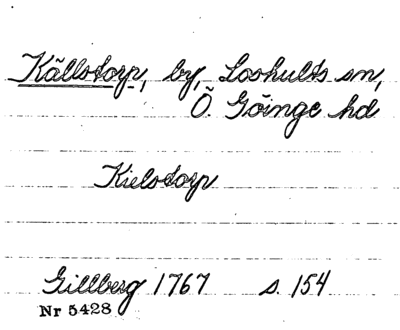 Källstorp, by, Loshults sn,
Ö. Göinge hd
Kielstorp
Gillberg 1767 s. 154
Nr 5428